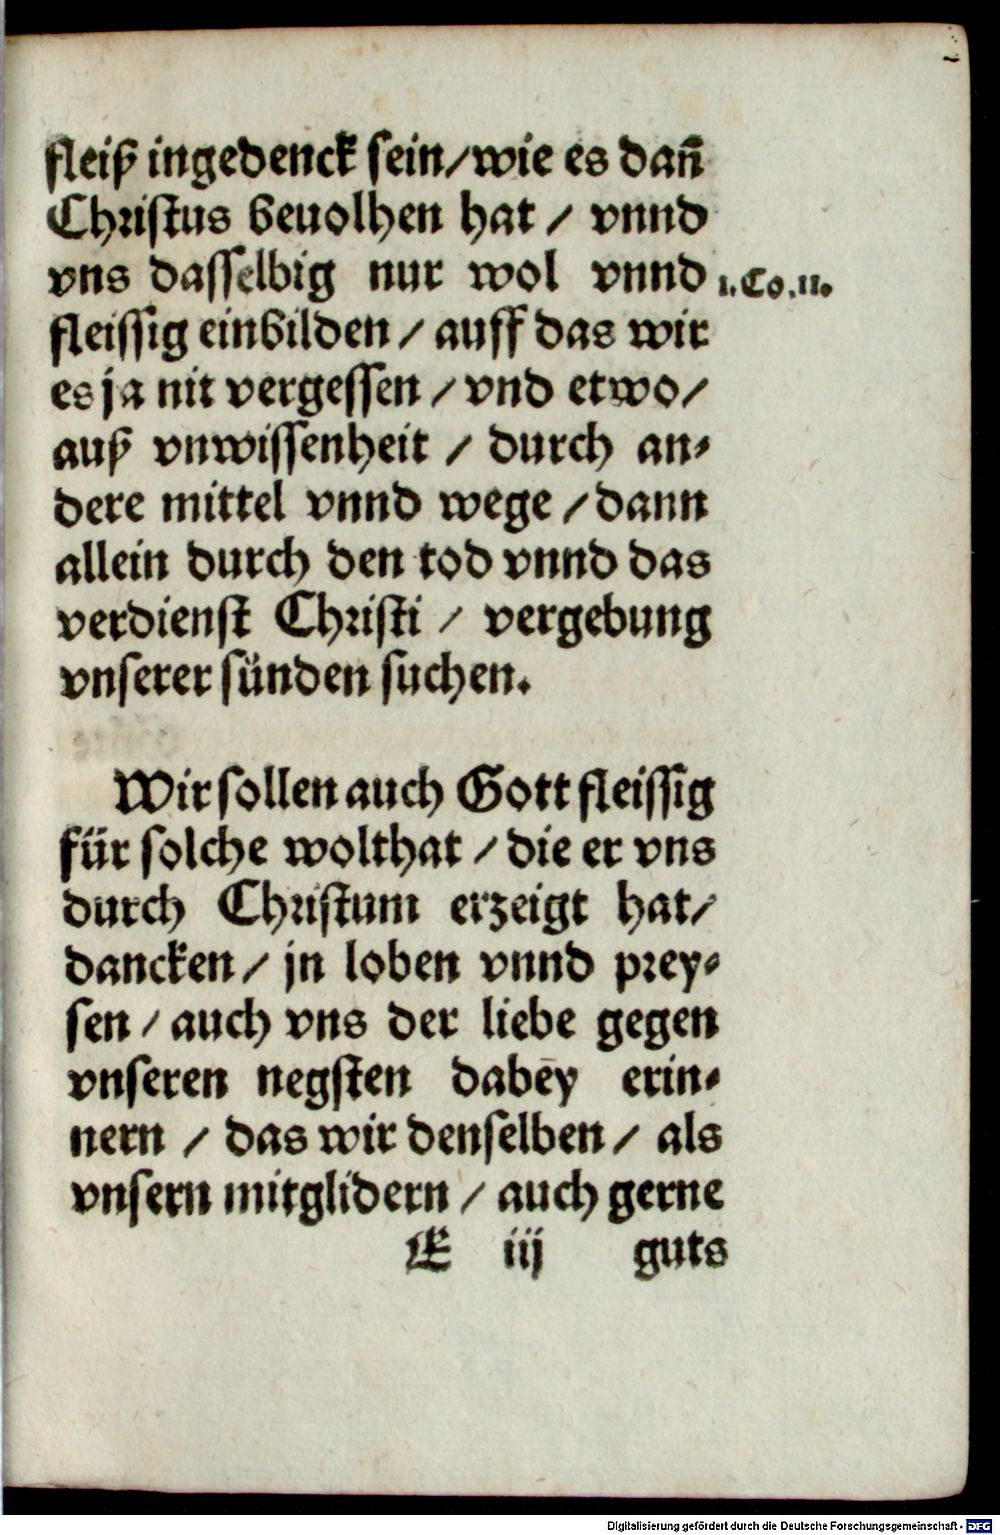 fleiß ingedenck sein/wie es dañ
Christus beuolhen hat / vnnd
vns dasselbig nur wol vnnd
1.Co.11.
fleissig einbilden / auff das wir
es ja nit vergessen / vnd etwo/
auß vnwissenheit / durch an-
dere mittel vnnd wege / dann
allein durch den tod vnnd das
verdienst Christi / vergebung
vnserer sünden suchen.
Wir sollen auch Gott fleissig
für solche wolthat / die er vns
durch Christum erzeigt hat/
dancken / jn loben vnnd prey-
sen / auch vns der liebe gegen
vnseren negsten dabey erin-
nern / das wir denselben / als
vnsern mitglidern / auch gerne
E iij guts
Digitalisierung gefördert durch die Deutsche Forschungsgemeinschaft - DFG